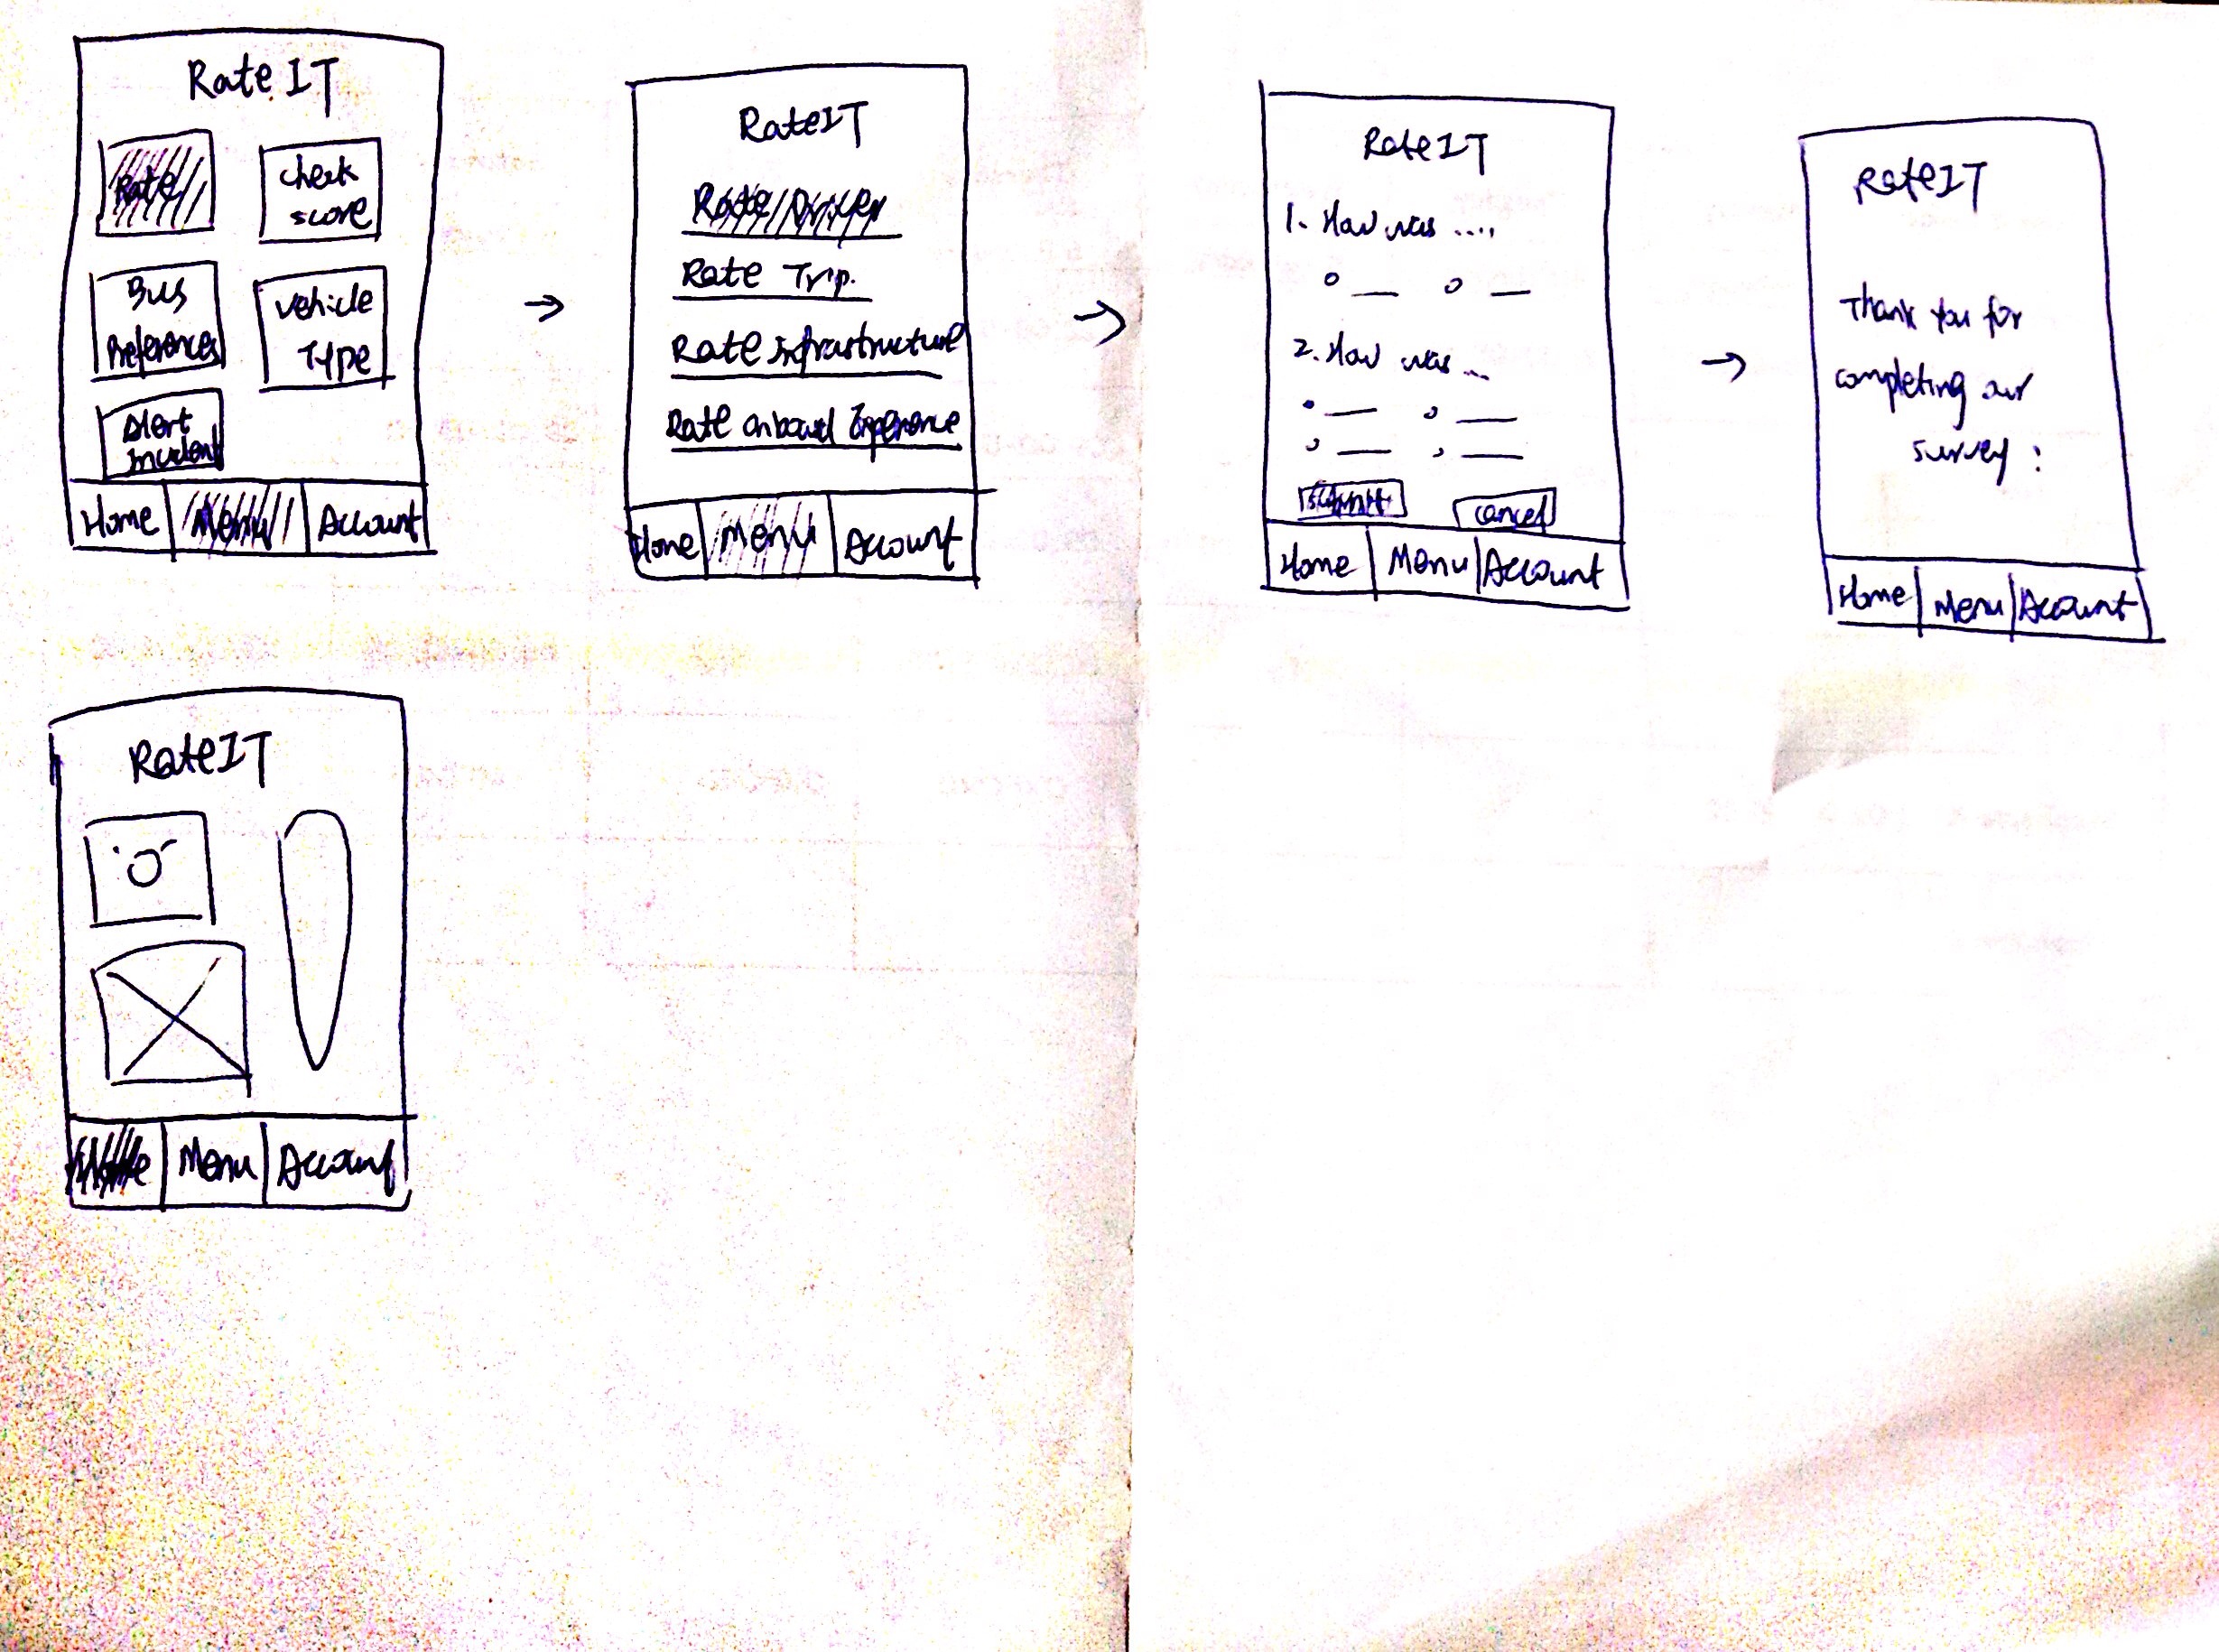 RateIT
Rate
check
score
Bus
Preferences
Vehicle
Type
Alert
Incident
Home Menu Account
RateIT
Rate Driver
Rate Trip.
Rate Infrastructure
Rate onboard Experience
Home Menu Account
RateIT
1. How was ....
2. How was ...
submit cancel
Home Menu Account
RateIT
Thank you for
completing our
survey :
Home Menu Account
RateIT
Home Menu Account